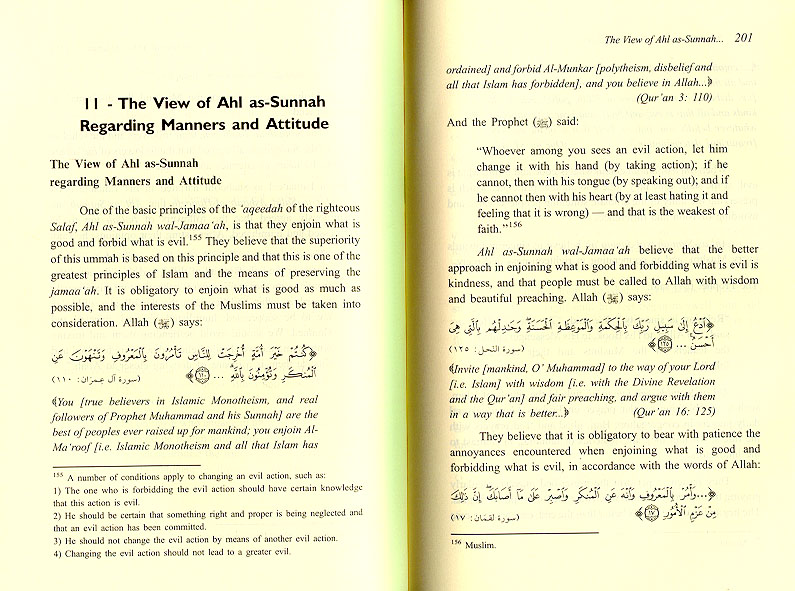 11 - The View of Ahl as-Sunnah
Regarding Manners and Attitude
The View of Ahl as-Sunnah
regarding Manners and Attitude
One of the basic principles of the ‘aqeedah of the righteous
Salaf, Ahl as-Sunnah wal-Jamaa‘ah, is that they enjoin what is
good and forbid what is evil.155 They believe that the superiority
of this ummah is based on this principle and that this is one of the
greatest principles of Islam and the means of preserving the
jamaa‘ah. It is obligatory to enjoin what is good as much as
possible, and the interests of the Muslims must be taken into
consideration. Allah (ﷻ) says:
﴿كُنتُمْ خَيْرَ أُمَّةٍ أُخْرِجَتْ لِلنَّاسِ تَأْمُرُونَ بِالْمَعْرُوفِ وَتَنْهَوْنَ عَنِ
الْمُنكَرِ وَتُؤْمِنُونَ بِاللَّهِ ... ﴿١١٠﴾﴾ (سورة آل عمران: ١١٠)
﴾You [true believers in Islamic Monotheism, and real
followers of Prophet Muhammad and his Sunnah] are the
best of peoples ever raised up for mankind; you enjoin Al-
Ma‘roof [i.e. Islamic Monotheism and all that Islam has
155 A number of conditions apply to changing an evil action, such as:
1) The one who is forbidding the evil action should have certain knowledge
that this action is evil.
2) He should be certain that something right and proper is being neglected and
that an evil action has been committed.
3) He should not change the evil action by means of another evil action.
4) Changing the evil action should not lead to a greater evil.
The View of Ahl as-Sunnah... 201
ordained] and forbid Al-Munkar [polytheism, disbelief and
all that Islam has forbidden], and you believe in Allah...﴿
(Qur’an 3: 110)
And the Prophet (ﷺ) said:
“Whoever among you sees an evil action, let him
change it with his hand (by taking action); if he
cannot, then with his tongue (by speaking out); and if
he cannot then with his heart (by at least hating it and
feeling that it is wrong) — and that is the weakest of
faith.”156
Ahl as-Sunnah wal-Jamaa‘ah believe that the better
approach in enjoining what is good and forbidding what is evil is
kindness, and that people must be called to Allah with wisdom
and beautiful preaching. Allah (ﷻ) says:
﴿ادْعُ إِلَى سَبِيلِ رَبِّكَ بِالْحِكْمَةِ وَالْمَوْعِظَةِ الْحَسَنَةِ وَجَادِلْهُم بِالَّتِي هِيَ
أَحْسَنُ ... ﴿١٢٥﴾﴾ (سورة النحل: ١٢٥)
﴾Invite [mankind, O’ Muhammad] to the way of your Lord
[i.e. Islam] with wisdom [i.e. with the Divine Revelation
and the Qur’an] and fair preaching, and argue with them
in a way that is better...﴿ (Qur’an 16: 125)
They believe that it is obligatory to bear with patience the
annoyances encountered when enjoining what is good and
forbidding what is evil, in accordance with the words of Allah:
﴿...وَأْمُرْ بِالْمَعْرُوفِ وَانْهَ عَنِ الْمُنكَرِ وَاصْبِرْ عَلَى مَا أَصَابَكَ إِنَّ ذَلِكَ
مِنْ عَزْمِ الْأُمُورِ ﴿١٧﴾﴾ (سورة لقمان: ١٧)
156 Muslim.